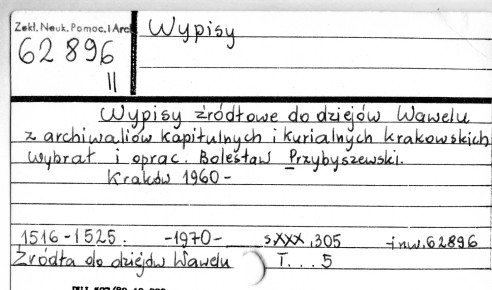 Zekł. Nauk. Pomoc. i Arch
Wypisy
62896
II
Wypisy źródłowe do dziejów Wawelu
z archiwaliów kapitulnych i kurialnych krakowskich
wybrał i oprac. Bolesław Przybyszewski.
Kraków 1960-
1516-1525. -1970- s.XXX,305 -inw.62896
Źródła do dziejów Wawelu T...5